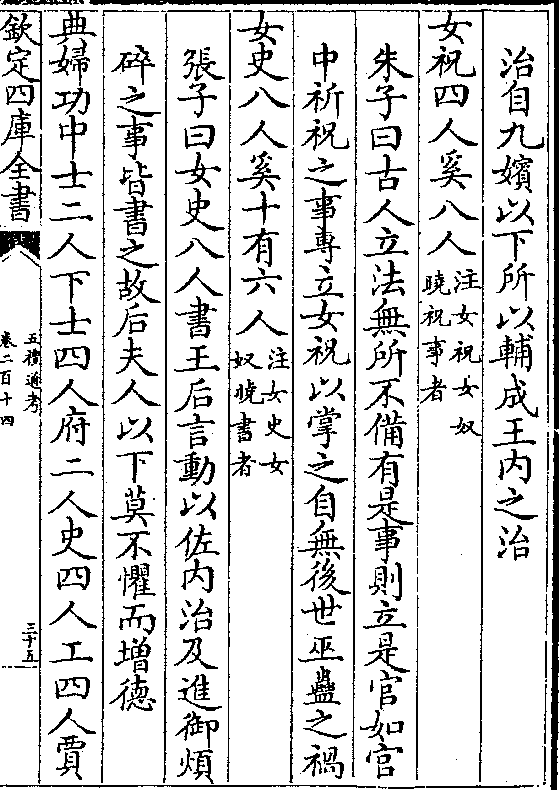 治自九嬪以下所以輔成王内之治
女祝四人奚八人注女祝女奴
曉祝事者
朱子曰古人立法無所不備有是事則立是官如官
中祈祝之事專立女祝以掌之自無後世巫蠱之禍
女史八人奚十有六人注女史女
奴曉書者
張子曰女史八人書王后言動以佐内治及進御煩
碎之事皆書之故后夫人以下莫不懼而增德
典婦功中士二人下士四人府二人史四人工四人賈
欽定四庫全書
五禮通考
卷二百十四
三十五